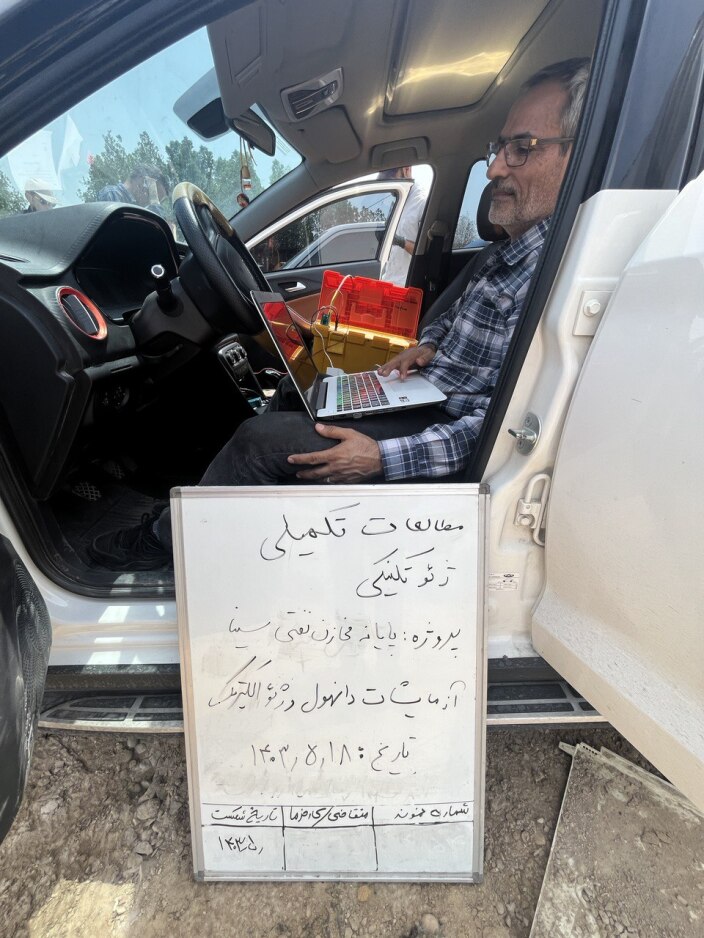 مطالعات تکمیلی
ژئوتکنیکی
پروژه: پایانه مخازن نفتی سینا
آزمایشات دانهول و ژئوالکتریک
تاریخ: ۱۴۰۳/۵/۱۸
شماره نمونه متقاضی/کارفرما تاریخ شکست